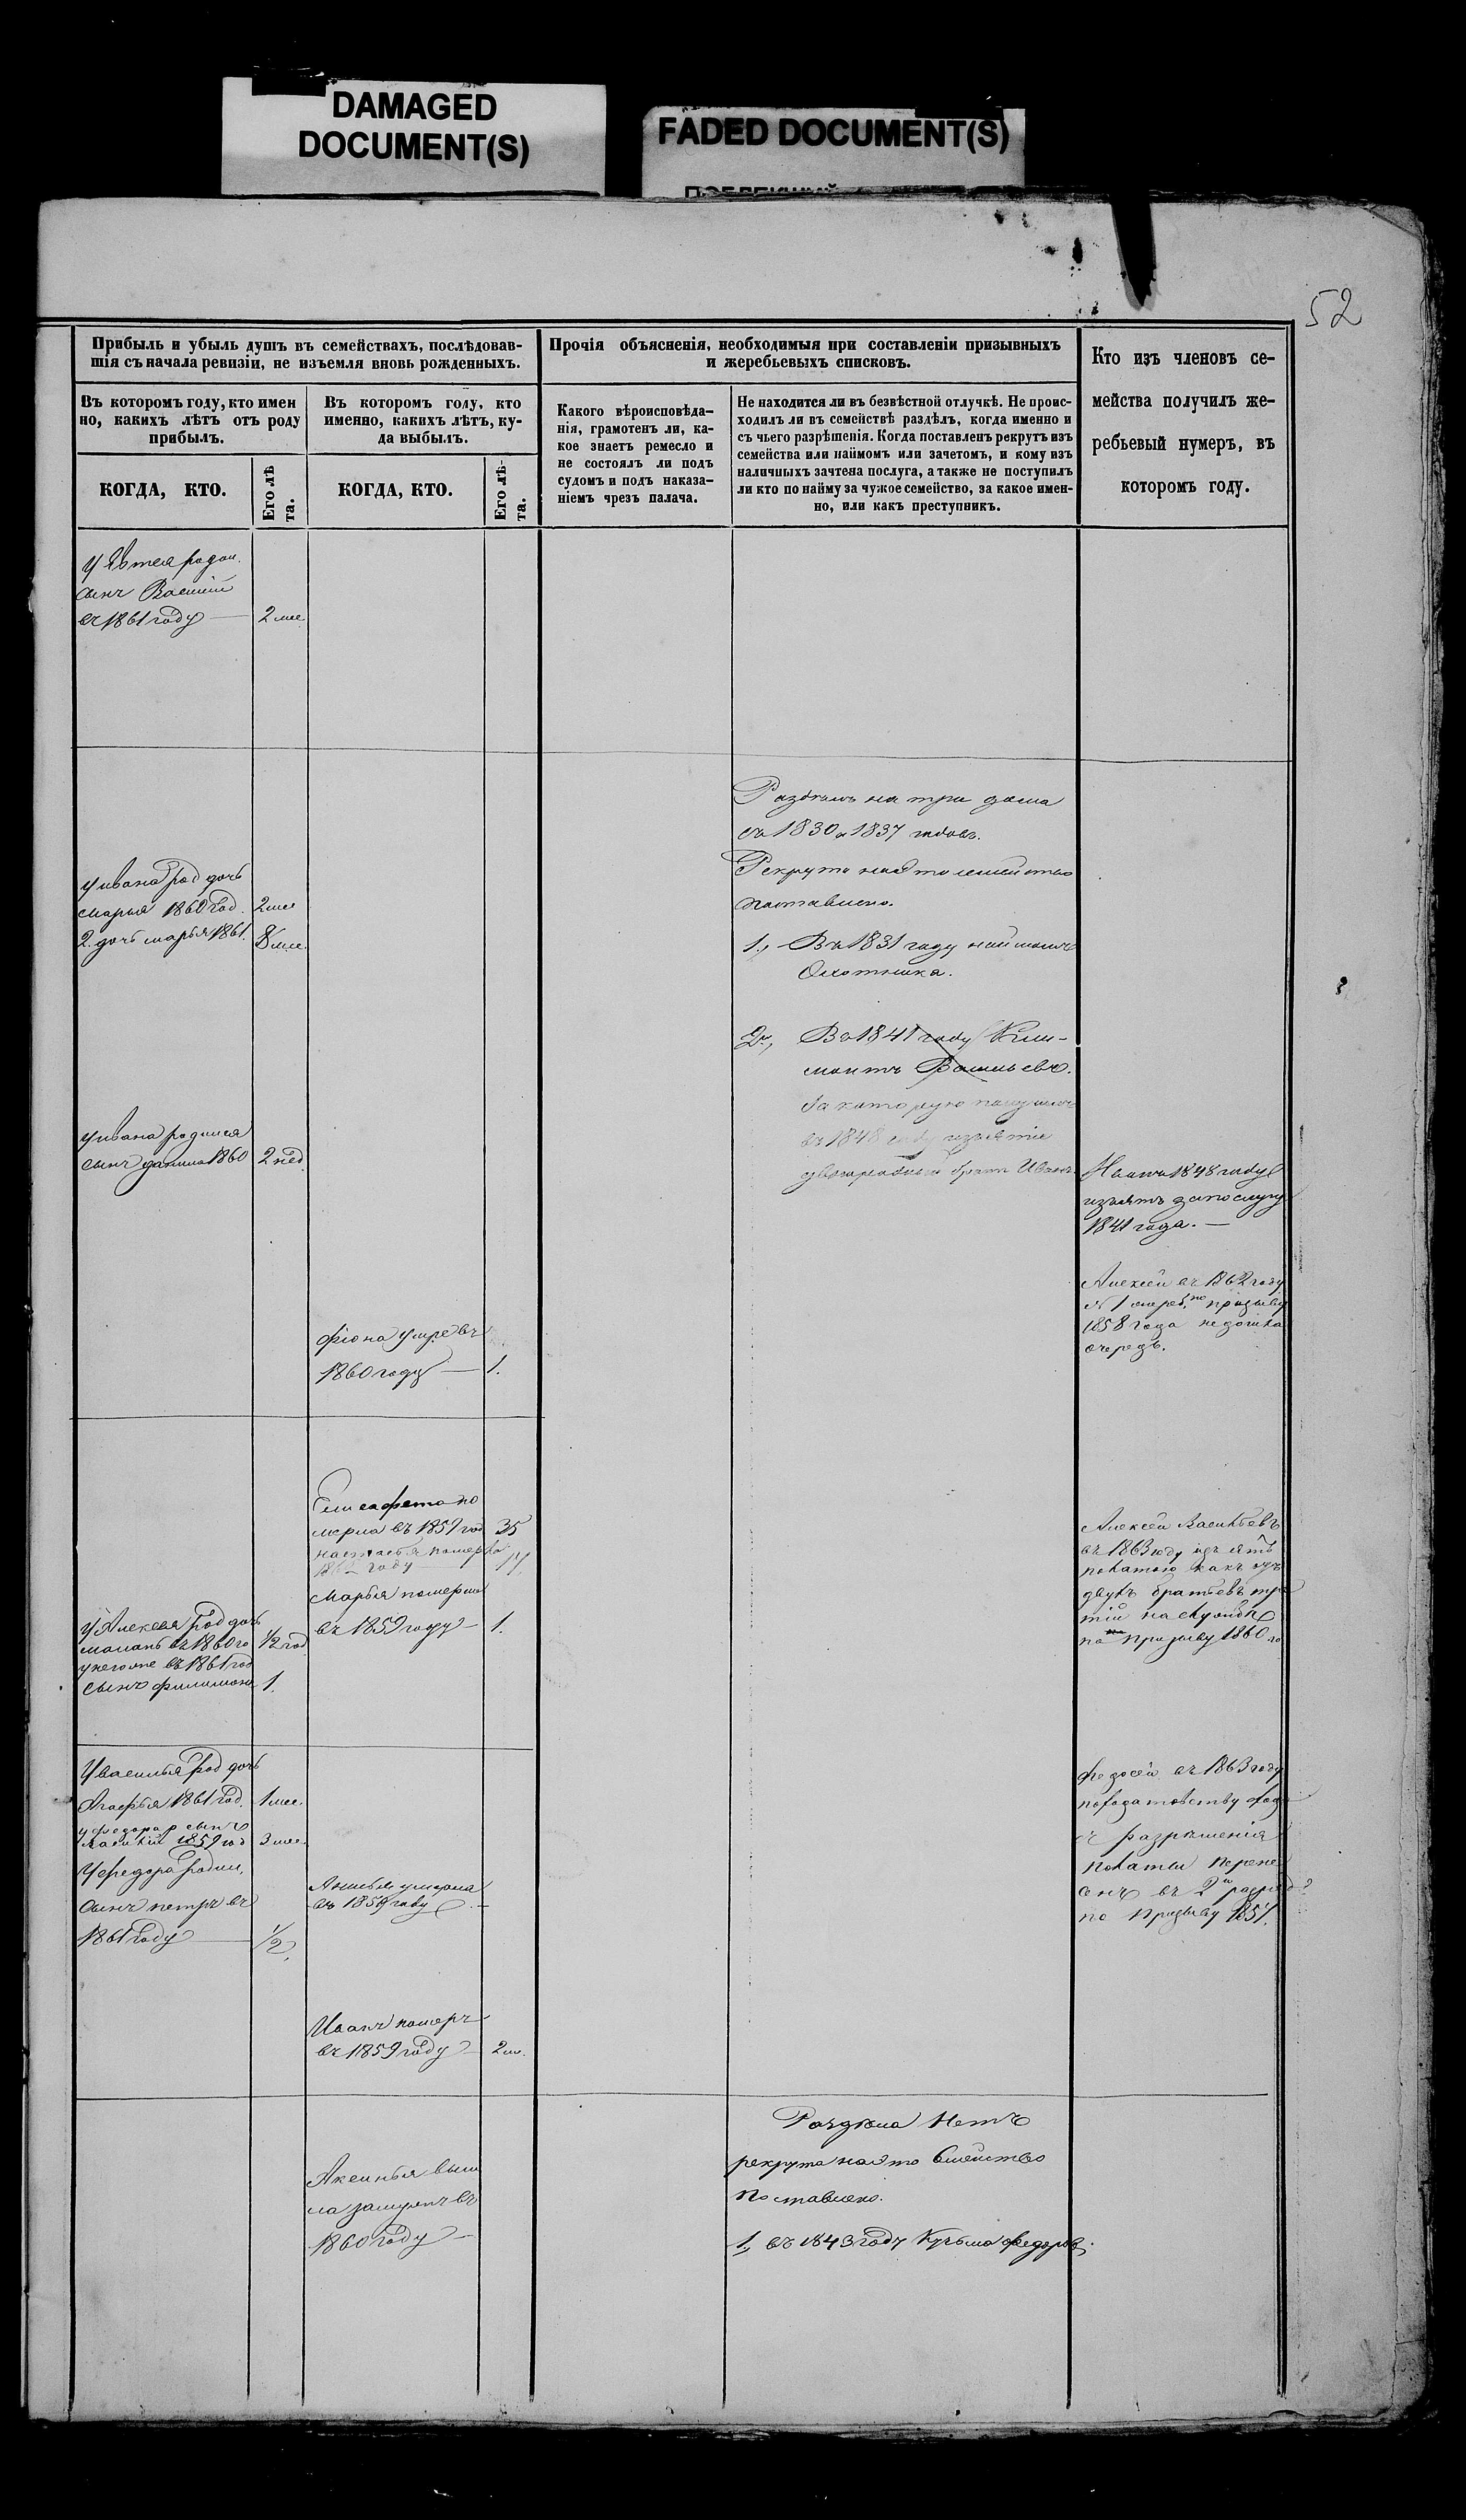 DAMAGED
DOCUMENT(S)
FADED DOCUMENT(S)
52
Прибыль и убыль душъ въ семействахъ, послѣдовав-
шія съ начала ревизіи, не изъемля вновь рожденныхъ.
Въ которомъ году, кто имен
но, какихъ лѣтъ отъ роду
прибылъ.
КОГДА, КТО.
Его лѣ
та.
Въ которомъ году, кто
именно, какихъ лѣтъ, ку-
да выбылъ.
КОГДА, КТО.
Его лѣ-
та.
Прочія объясненія, необходимыя при составленіи призывныхъ
и жеребьевыхъ списковъ.
Какого вѣроисповѣда-
нія, грамотенъ ли, ка-
кое знаетъ ремесло и
не состоялъ ли подъ
судомъ и подъ наказа-
ніемъ чрезъ палача.
Не находится ли въ безвѣстной отлучкѣ. Не проис-
ходилъ ли въ семействѣ раздѣлъ, когда именно и
съ чьего разрѣшенія. Когда поставленъ рекрутъ изъ
семейства или наймомъ или зачетомъ, и кому изъ
наличныхъ зачтена послуга, а также не поступилъ
ли кто по найму за чужое семейство, за какое имен-
но, или какъ преступникъ.
Кто изъ членовъ се-
мейства получилъ же-
ребьевый нумеръ, въ
которомъ году.
сынъ Василій
въ 1861 году 2 мес
на три дома
съ 1830 и 1837 годовъ.
Рекрутъ
поставлено.
1., Въ 1831 году
Охотника.
2., Въ 1841 году Кли-
ментъ Васильевъ.
За которую
въ 1848 году изъятіе
двоюродный братъ Иванъ
у ивана род дочь
марья 1860 год. 2 мес
2. дочь марья 1861. 8 мес.
у ивана родился
сынъ данила 1860 2 нед
1848 году
изъятъ за послугу
1841 года. —
Алексей въ 1862 году
№ 1 по призыву
1858 года не дошла
очередь.
умре въ
1860 году — 1.
Елисафета по
мерла въ 1859 год 35
настасья померла
году 14
Марья померла
въ 1859 году — 1.
у Алексея род дочь
въ 1860 го 1/2 год
у негоже въ 1861 год
сынъ филимонъ 1.
Алексей Васильевъ
въ 1863 году изъятъ
палатою какъ изъ
двухъ братьевъ тре
тій
по призыву 1860 го
у василья род дочь
Агафья 1861 год. 1 мес.
у федора р сынъ
1859 год 3 мес.
У федора родил.
сынъ петръ въ
1861 году 1/2
федосей въ 1863 году
по ходатайству
съ разрешенія
палаты перене
сенъ въ 2й разряд
по призыву 1857.
умерла
въ 1859 году —
Иванъ померъ
въ 1859 году — 2 м.
Аксинья выш
ла замужъ въ
1860 году —
Раздела Нетъ
рекрута на это Семейство
поставлено.
1., въ 1843 году Кузьма Федоровъ.